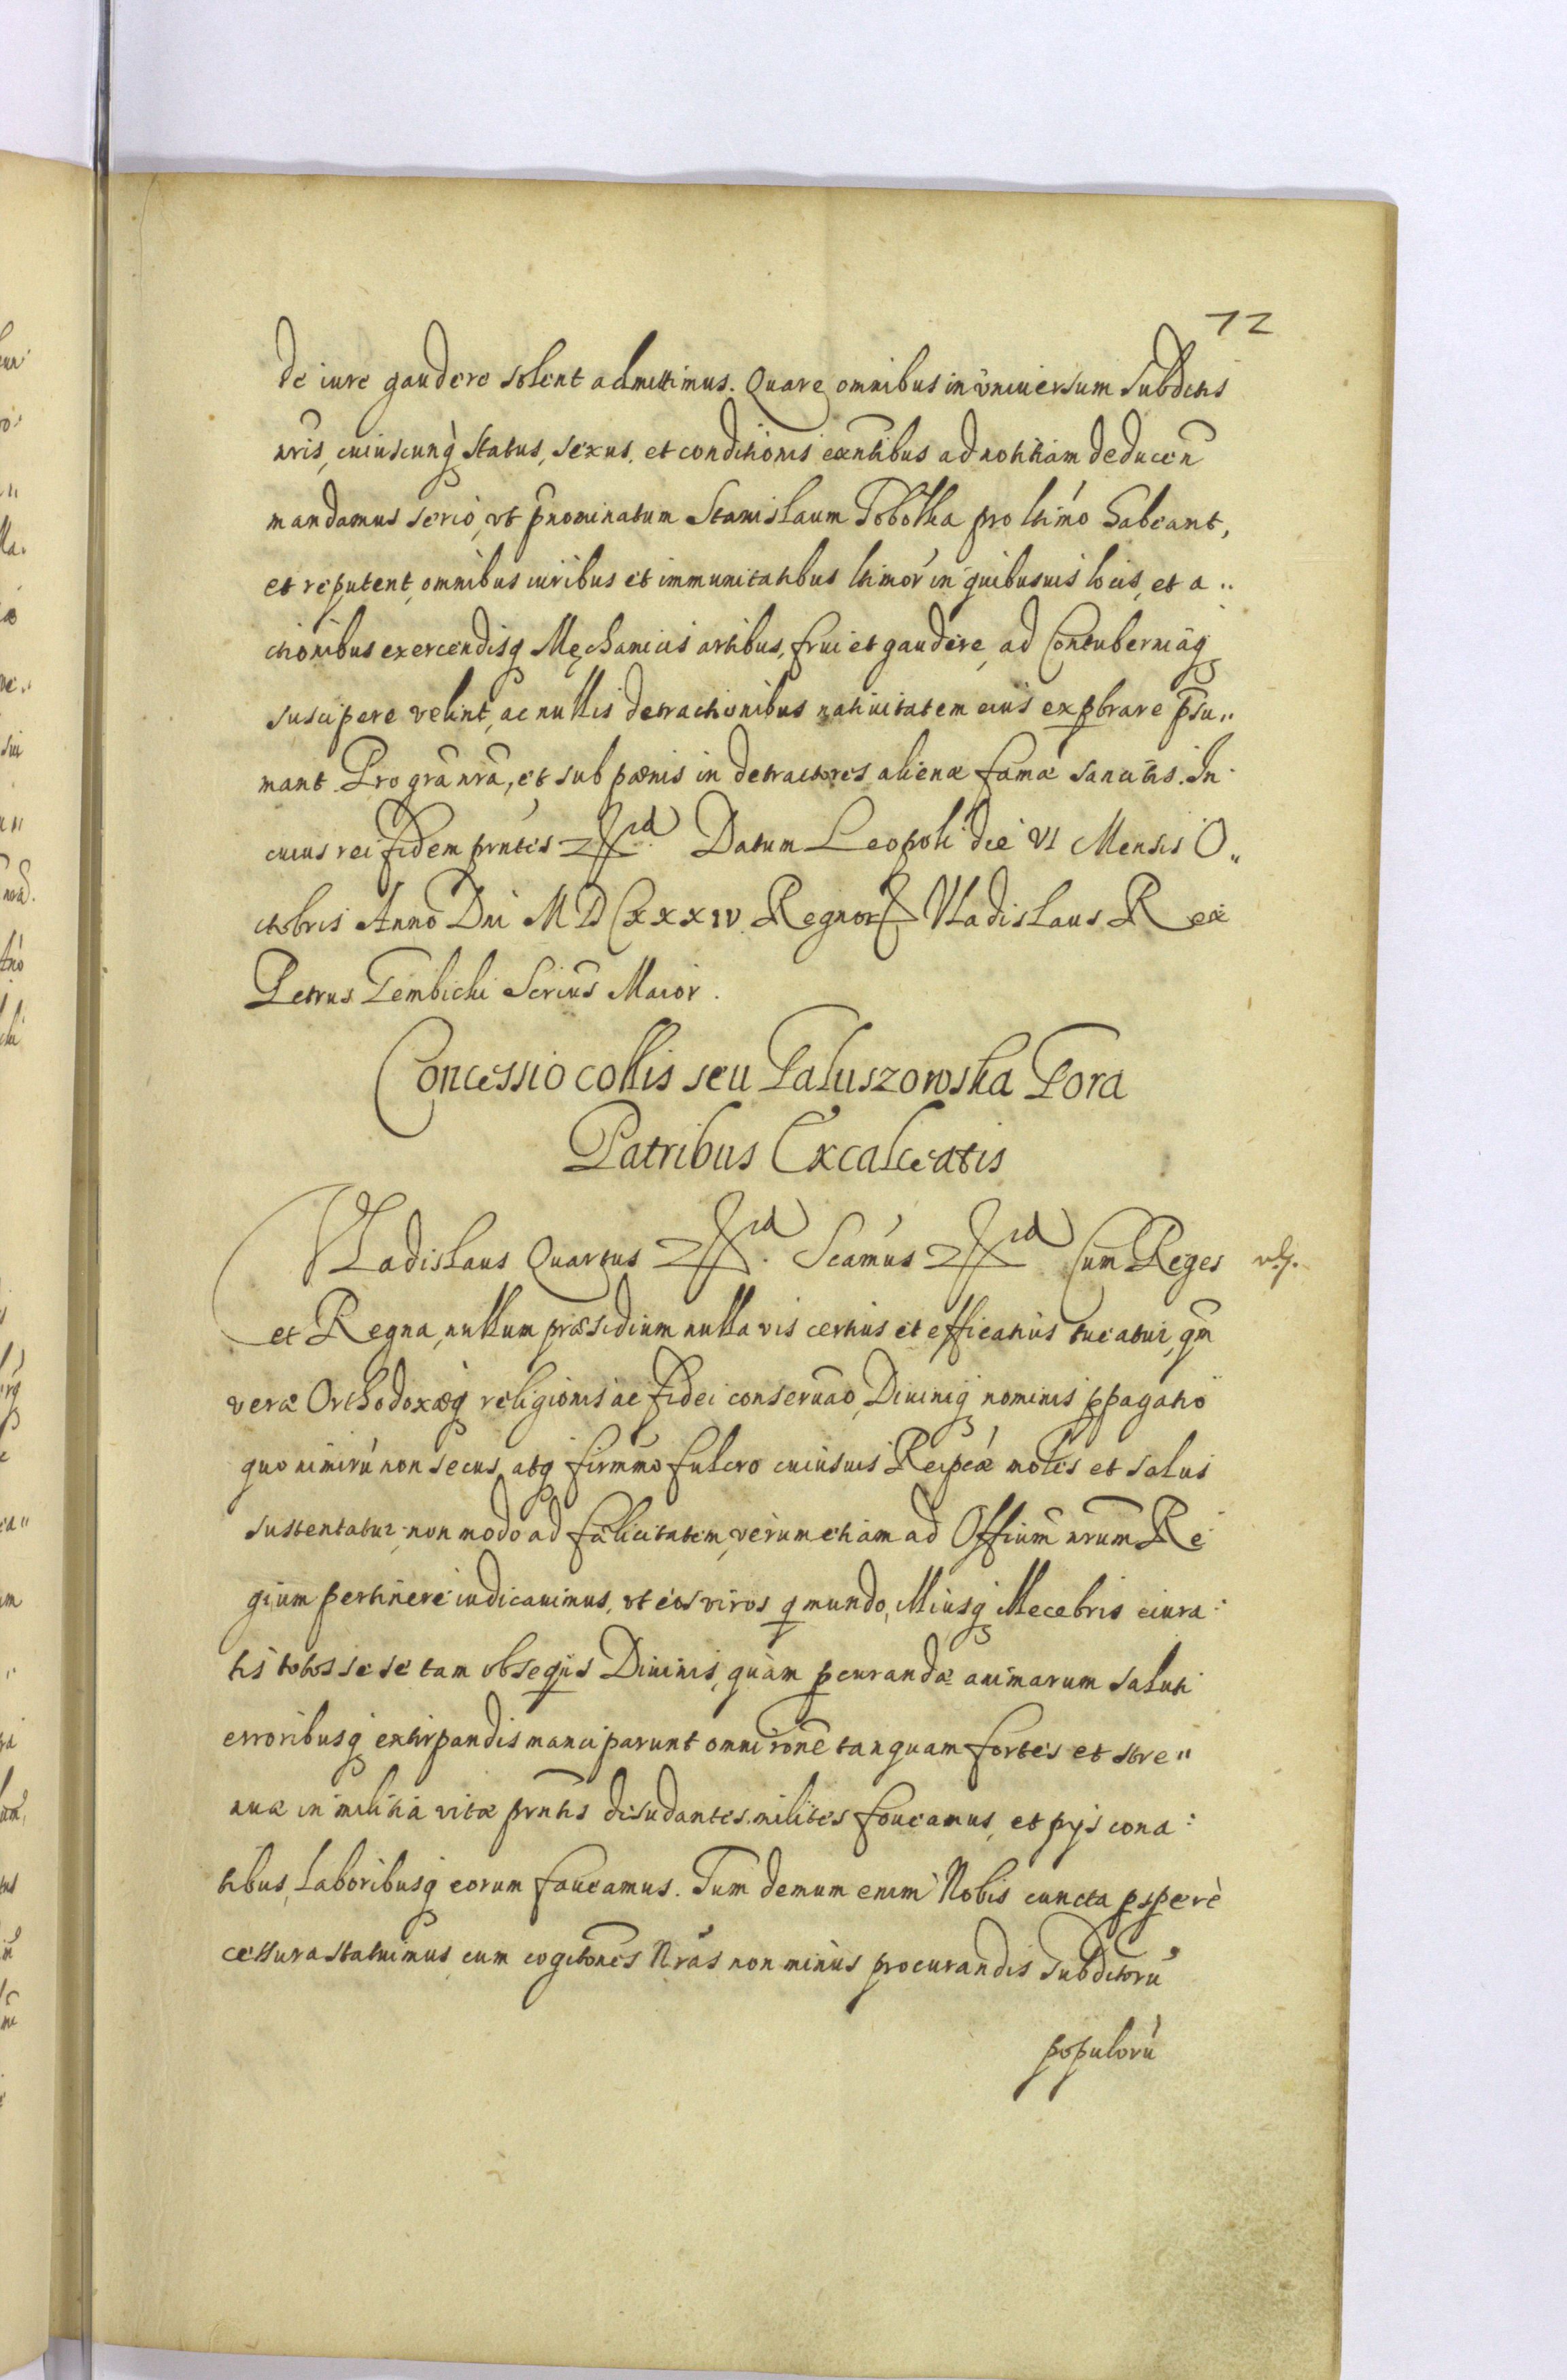 72
de iure gaudere solent admittimus. Quare omnibus in vniuersum Subditis
nris, cuiuscunq status, sexus, et conditionis exntibus ad notitiam deducen
mandamus serio, vt pnominatum Stanislaum Tobolka pro ltimo habeant,
et reputent, omnibus iuribus et immunitatibus ltimor in quibusuis locis, et a„
ctionibus exercendisq Mechanicis artibus, frui et gaudere, ad Contuberniaq
suscipere velint, ac nullis detractionibus natiuitatem eius expbrare psu„
mant Pro gra nra, et sub pænis in detractores alienæ famæ sancitis. In
cuius rei fidem prntes Datum Leopoli die VI Mensis O„
ctobris Anno Dni MDCXXXIV. Regnor Vladislaus Rex
Petrus Gembicki Scrius Maior.
Concessio collis seu Galuszowska Gora
Patribus Excalceatis
Vladislaus Quartus Scamus Cum Reges
et Regna, nullum præsidium nulla vis certius et efficatius tueatur, qm
veræ Orthodoxæq religionis ac fidei conseruao, Diuiniq nominis ppagatio
quo nimirù non secus, atq firmmo fulcro cuiusuis Reipcæ moles et salus
sustentatur, non modo ad fælicitatem, verum etiam ad Offium nrum Re
gium pertinere iudicauimus, vt eos viros q mundo, illiusq illecebris eiura:
tis totos sese tam obsequis Diuinis, quàm pcurandæ animarum saluti
erroribusq extirpandis manciparunt omni rone tanquam fortes et stre„
nuæ in militia vitæ prntis desudantes milites foueamus, et pijs cona:
tibus, Laboribusq eorum faueamus. Tum demum enim Nobis cuncta pspere
cessura statuimus, cum cogitones Nras non minus procurandis Subditorù
populorù